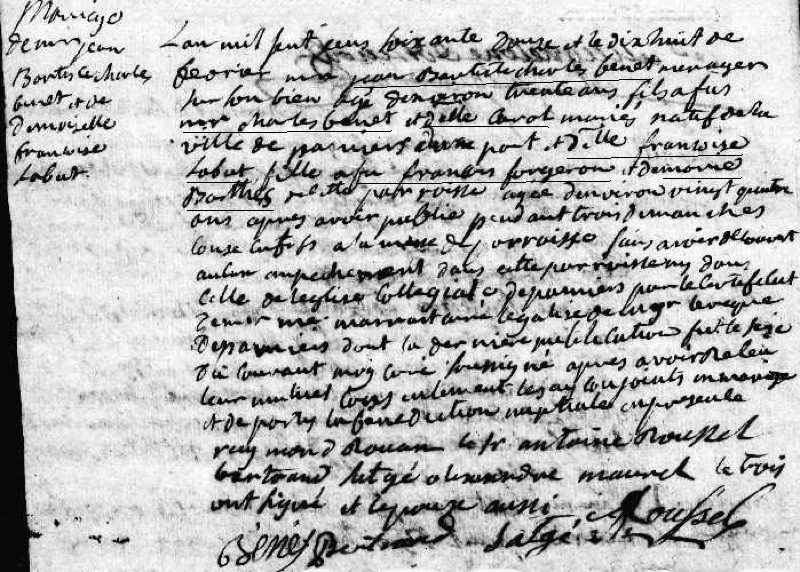 Mariage
de mr jean
Baptiste charles
benet et de
Demoiselle
françoise
Labat.
Lan mil sept cens soixante douze et le dixhuit de
fevrier mr jean Baptiste charles benet menager
sur son bien agé denviron trente ans fils a fus
mr charles benet et dlle Carol mariés natif de la
ville de pamiers dune part et dlle françoise
Labat fille a fu françois forgeron et de marie
Barthes de cette parroisse agée denviron vingt quatre
ans apres avoir publié pendant trois dimanches
consecutifs a la messe de parroisse sans avoir decouvert
aucun empechement dans cette parroisse ny dans
celle de leglise Collegiale de pamiers par le Certificat
de mr legalisé de mgr leveque
De pamiers dont la derniere publication fut le seize
Du courant moy curé soussigné apres avoir receu
leur mutuel consentement les ay conjoints en mariage
et de partis la benediction nuptiale en presence
raymond Rouan le sr antoine Roussel
bertrand latgé alexandre maurel le trois
ont signé et lepoux aussi
Bénet Bertrand Latgé Roussel